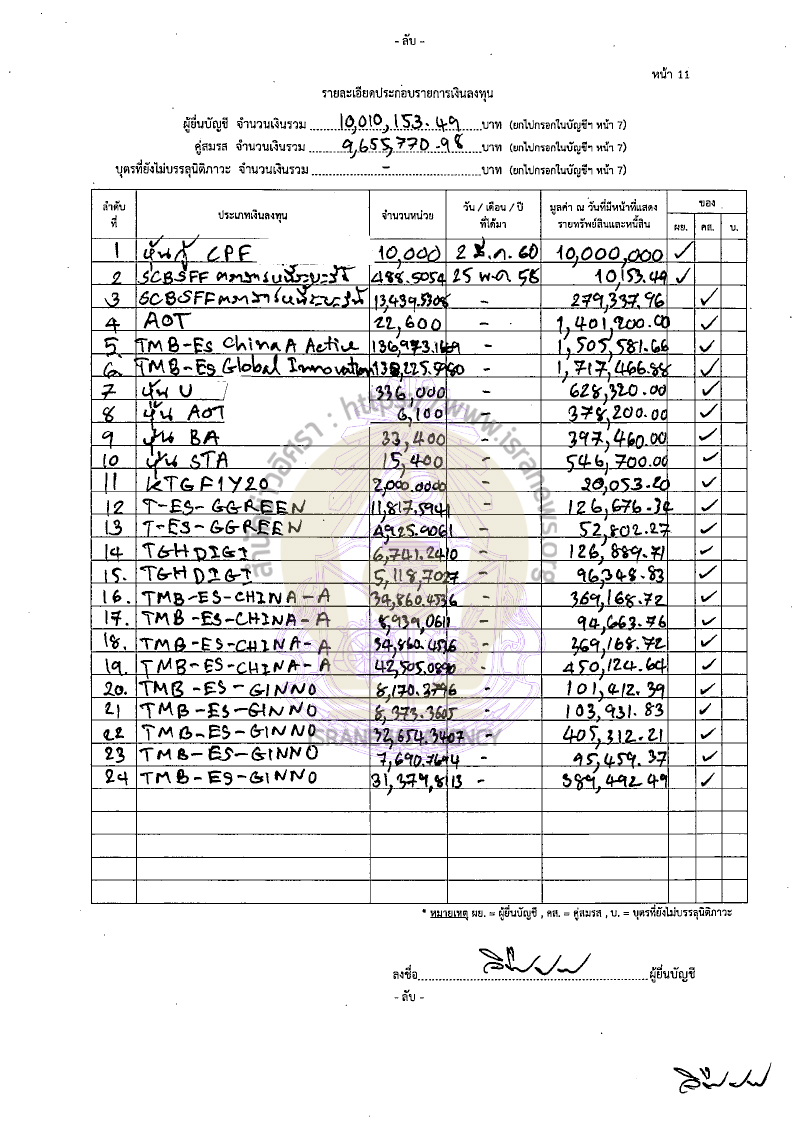 - ลับ -
หน้า 11
รายละเอียดประกอบรายการเงินลงทุน
ผู้ยื่นบัญชี จำนวนเงินรวม 10,010,153.49 บาท (ยกไปกรอกในบัญชีฯ หน้า 7)
คู่สมรส จำนวนเงินรวม 9,655,770.98 บาท (ยกไปกรอกในบัญชีฯ หน้า 7)
บุตรที่ยังไม่บรรลุนิติภาวะ จำนวนเงินรวม - บาท (ยกไปกรอกในบัญชีฯ หน้า 7)
ลำดับที่ ประเภทเงินลงทุน จำนวนหน่วย วัน / เดือน / ปี ที่ได้มา มูลค่า ณ วันที่มีหน้าที่แสดงรายการทรัพย์สินและหนี้สิน ของ ผย. คส. บ.
1 หุ้นกู้ CPF 10,000 2 มี.ค. 60 10,000,000 ✓
2 SCBSFF 488.5054 25 พ.ค 58 10,153.49 ✓
3 SCBSFF 13,439.5308 - 279,337.96 ✓
4 AOT 22,600 - 1,401,200.00 ✓
5 TMB-ES China A Active 136,973.1669 - 1,505,581.66 ✓
6. TMB-ES Global Innovation - 1,717,466.88 ✓
7 หุ้น U 336,000 - 628,320.00 ✓
8 หุ้น AOT 6,100 - 378,200.00 ✓
9 หุ้น BA 33,400 - 397,460.00 ✓
10 หุ้น STA 15,400 - 546,700.00 ✓
11 KTGF1Y20 2,000.0000 - 20,053.20 ✓
12 T-ES-GGREEN 11,817.5941 - 126,676.34 ✓
13 T-ES-GGREEN 4,925.9061 - 52,802.27 ✓
14 TGHDIGI 6,741.2410 - 126,889.71 ✓
15. TGHDIGI 5,118.7027 - 96,348.83 ✓
16. TMB-ES-CHINA-A 34,860.4536 - 369,168.72 ✓
17. TMB-ES-CHINA-A 8,939.0611 - 94,663.76 ✓
18. TMB-ES-CHINA-A 34,860.4536 - 369,168.72 ✓
19. TMB-ES-CHINA-A 42,505.0890 - 450,124.64 ✓
20. TMB-ES-GINNO 8,170.3796 - 101,412.39 ✓
21 TMB-ES-GINNO 8,373.3605 - 103,931.83 ✓
22 TMB-ES-GINNO 32,654.3407 - 405,312.21 ✓
23 TMB-ES-GINNO 7,690.7694 - 95,459.37 ✓
24 TMB-ES-GINNO 31,379.8113 - 389,492.49 ✓
* หมายเหตุ ผย. = ผู้ยื่นบัญชี , คส. = คู่สมรส , บ. = บุตรที่ยังไม่บรรลุนิติภาวะ
ลงชื่อ ผู้ยื่นบัญชี
- ลับ -
สำนักข่าวอิศรา : https://www.isranews.org
ISRANEWS AGENCY